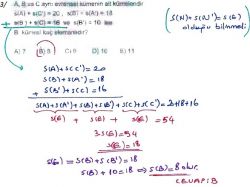 3/ A, B ve C aynı evrensel kümenin alt kümeleridir
s(A) + s(C') = 20 , s(B) + s(A') = 18
s(B') + s(C) = 16 ve s(B') = 10 ise
B kümesi kaç elemanlıdır?
A) 7 B) 8 C) 9 D) 10 E) 11
s(A)+s(A')=s(E)
olduğu bilinmeli
s(A)+s(C')=20
s(B)+s(A')=18
+ s(B')+s(C)=16
s(A)+s(A')+s(B)+s(B')+s(C)+s(C')=20+18+16
s(E) + s(E) + s(E) = 54
3.s(E)=54
s(E)=18
s(E)=s(B)+s(B')=18
s(B)+10=18 ⇒ s(B)=8 olur.
CEVAP:B